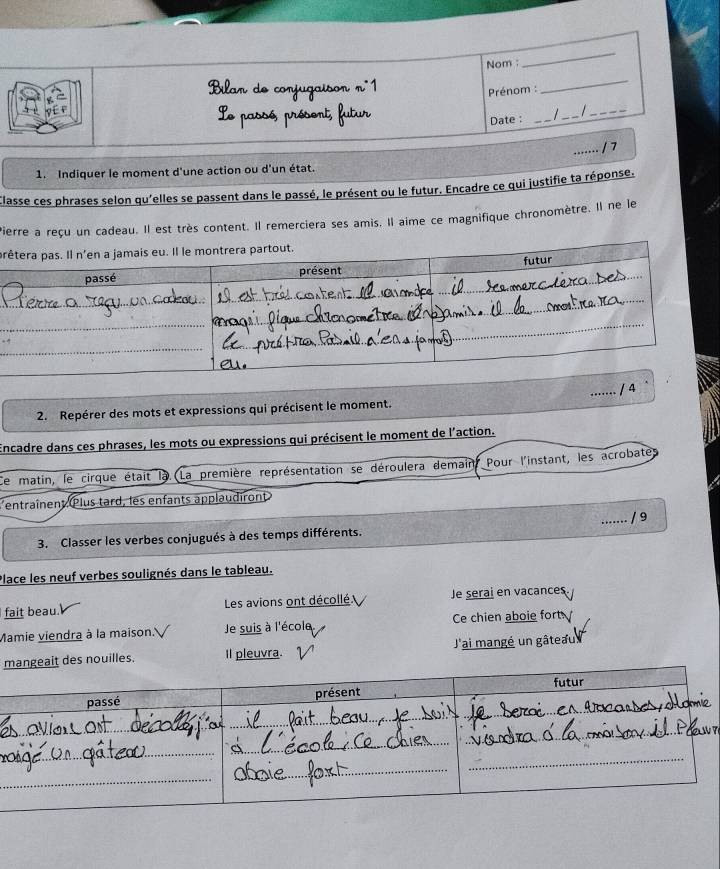 Nom :
Bilan de conjugaison n°1
Prénom :
Le passé, présent, futur
Date : __/__/____
....... / 7
1. Indiquer le moment d'une action ou d'un état.
Classe ces phrases selon qu'elles se passent dans le passé, le présent ou le futur. Encadre ce qui justifie ta réponse.
Pierre a reçu un cadeau. Il est très content. Il remerciera ses amis. Il aime ce magnifique chronomètre. Il ne le
prêtera pas. Il n'en a jamais eu. Il le montrera partout.
passé présent futur
Pierre a reçu un cadeau. il est très content il aim ce il remerciera ses
magni fique chronomètre il n amis. il le montrera
le prètra Pas il n'en a jamais
eu.
....... / 4
2. Repérer des mots et expressions qui précisent le moment.
Encadre dans ces phrases, les mots ou expressions qui précisent le moment de l'action.
Ce matin, le cirque était là. La première représentation se déroulera demain. Pour l'instant, les acrobates
s'entraînent. Plus tard, les enfants applaudiront
....... / 9
3. Classer les verbes conjugués à des temps différents.
Place les neuf verbes soulignés dans le tableau.
fait beau. Les avions ont décollé. Je serai en vacances.
Mamie viendra à la maison. Je suis à l'école. Ce chien aboie fort.
mangeait des nouilles. Il pleuvra. J'ai mangé un gâteau.
passé présent futur
les avions ont décollé, j'ai il fait beau, je suis je serai en vacances, Mamie
mangé un gâteau à l'école, ce chien viendra à la maison il Pleuvr
aboie fort